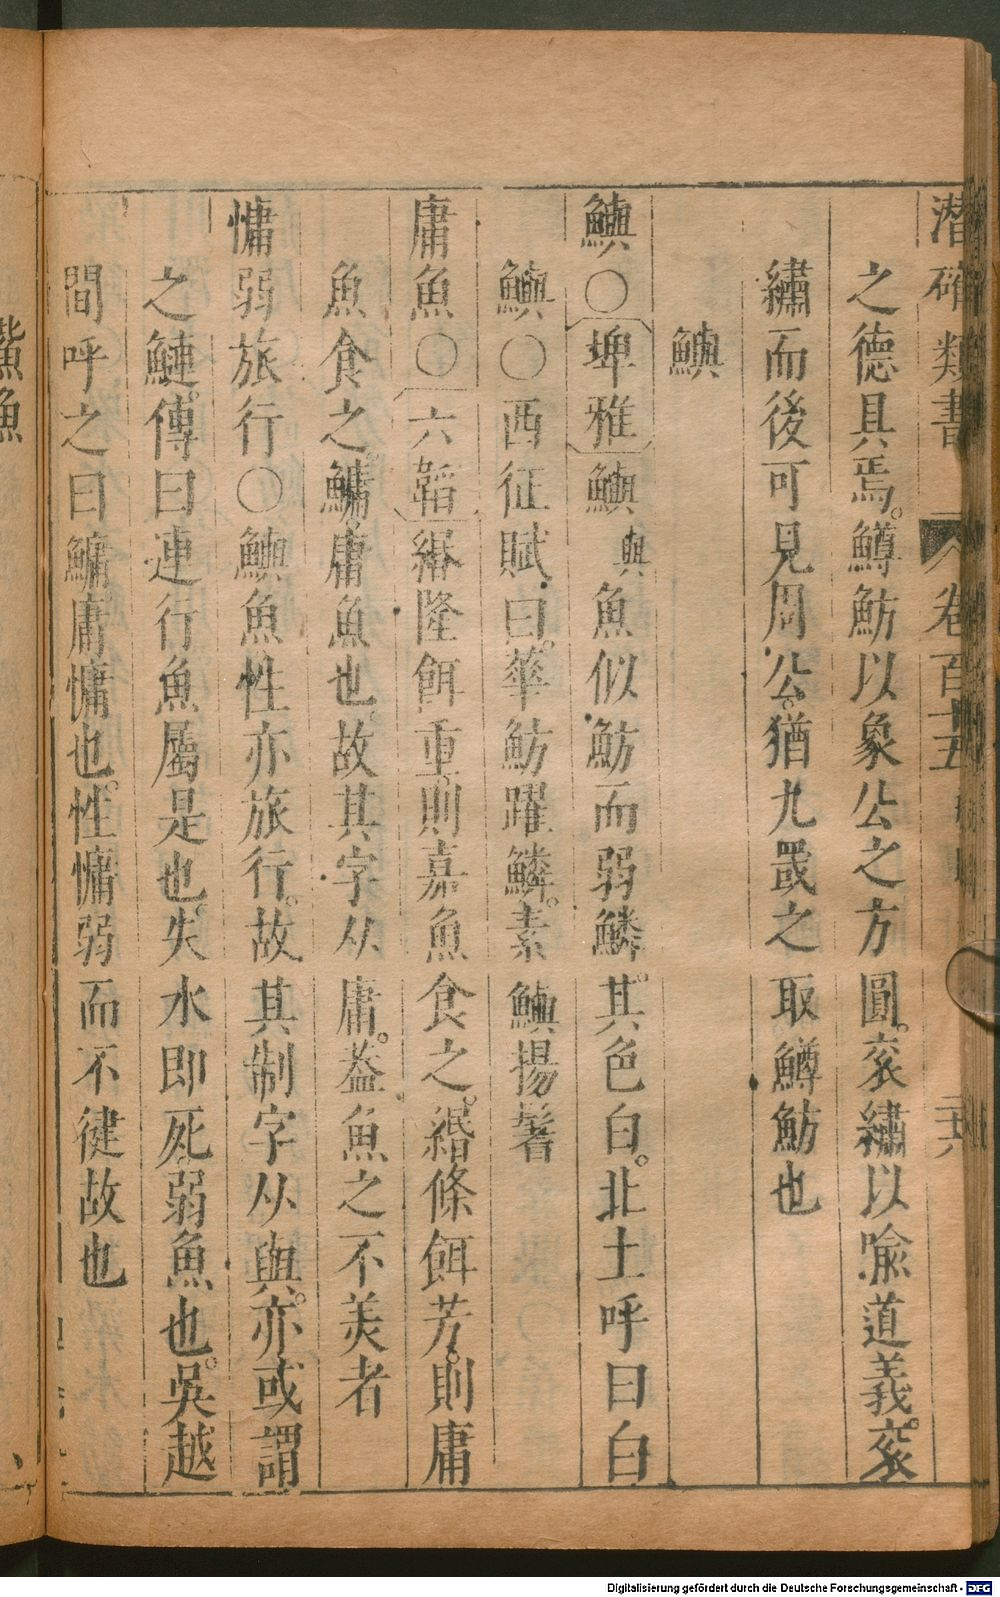 潛確類書 卷百十五 二十六
之德具焉鱒魴以象公之方圓衮繡以喻道義衮
繡而後可見周公猶九罭之取鱒魴也
鱮
鱮〇埤雅鱮與魚似魴而弱鱗其色白北土呼曰白
鱮〇西征賦曰華魴躍鱗素鱮揚鬐
庸魚〇六韜緡隆餌重則嘉魚食之緡條餌芳則庸
魚食之鱅庸魚也故其字从庸葢魚之不美者
慵弱旅行〇鱮魚性亦旅行故其制字从與亦或謂
之鰱傳曰連行魚屬是也失水即死弱魚也吳越
間呼之曰鱅庸慵也性慵弱而不健故也
鮆魚
Digitalisierung gefördert durch die Deutsche Forschungsgemeinschaft - DFG